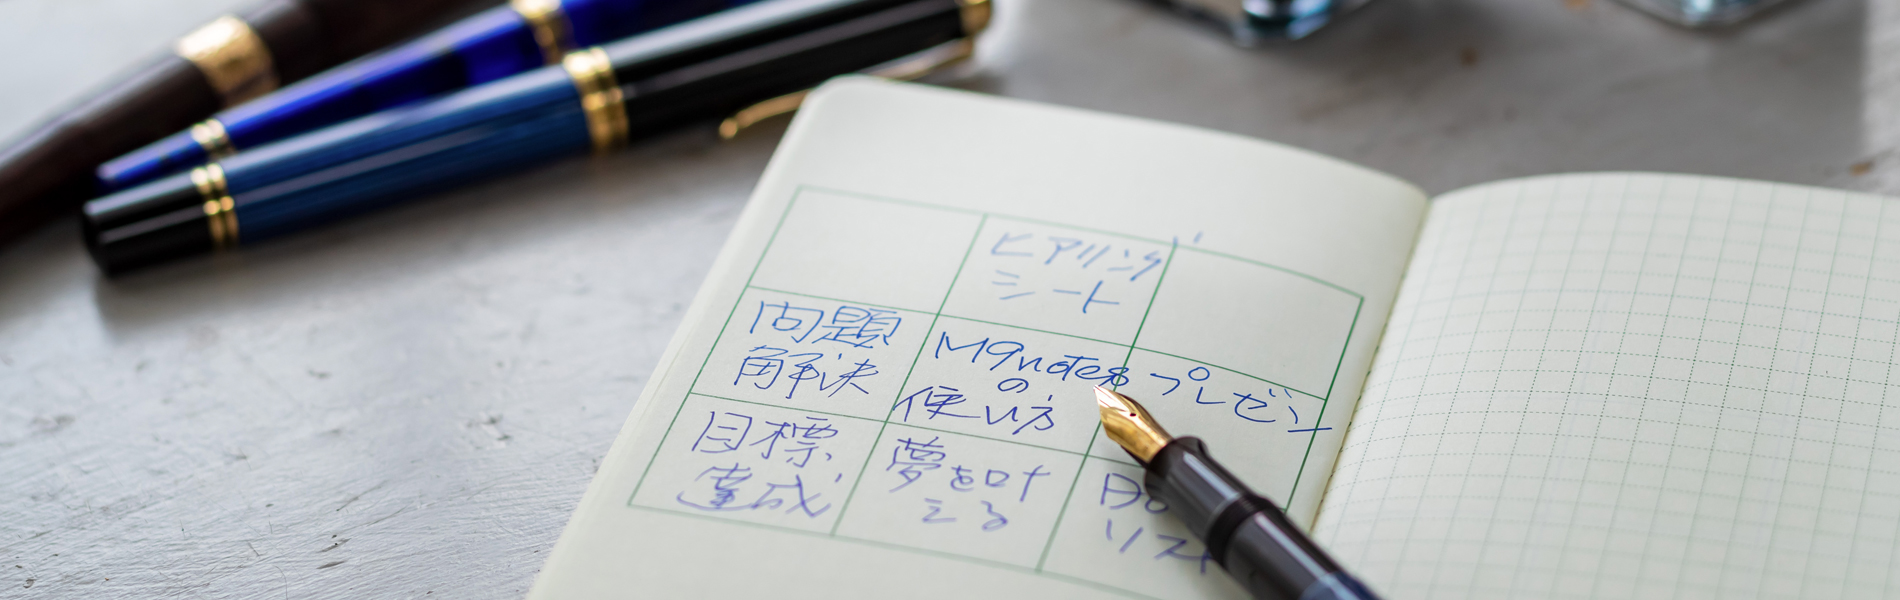 ヒアリング
シート
問題
解決
M9notes
の
使い方
プレゼン
目標
達成
夢を叶
える
リスト